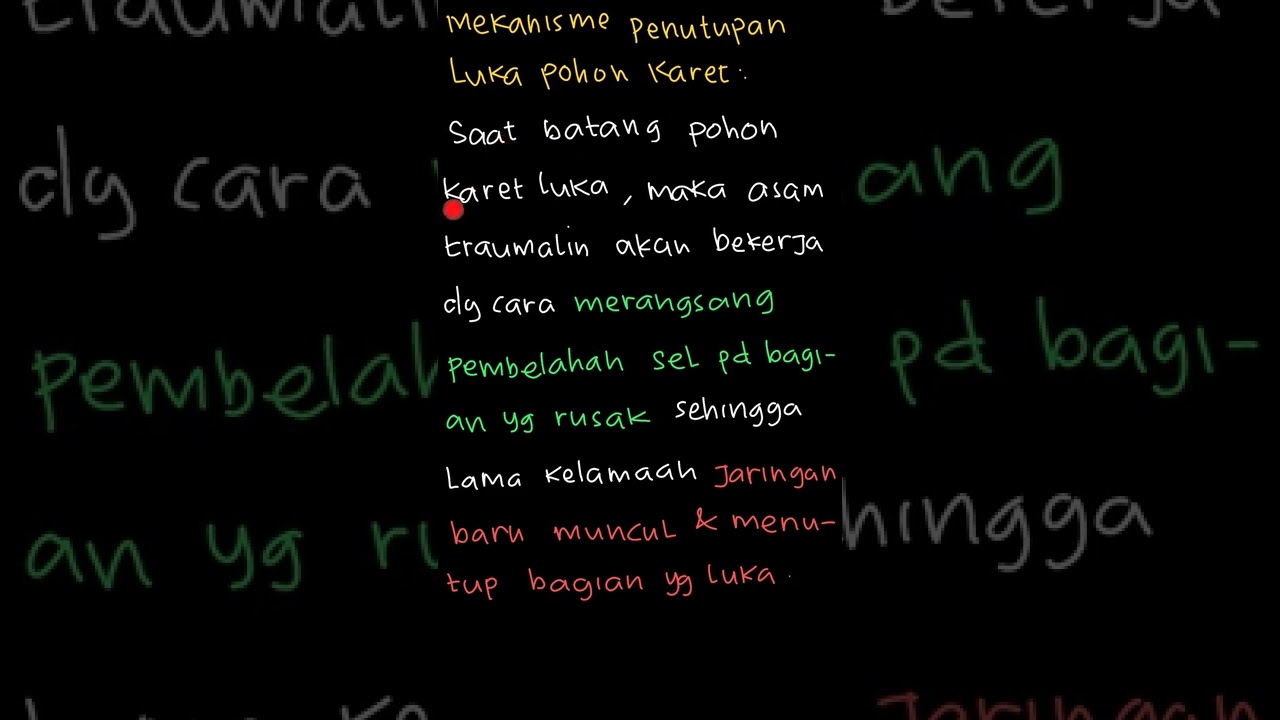 Mekanisme Penutupan
Luka Pohon Karet :
Saat batang pohon
karet luka, maka asam
traumalin akan bekerja
dg cara merangsang
pembelahan sel pd bagi-
an yg rusak sehingga
Lama kelamaan Jaringan
baru muncul & menu-
tup bagian yg luka.